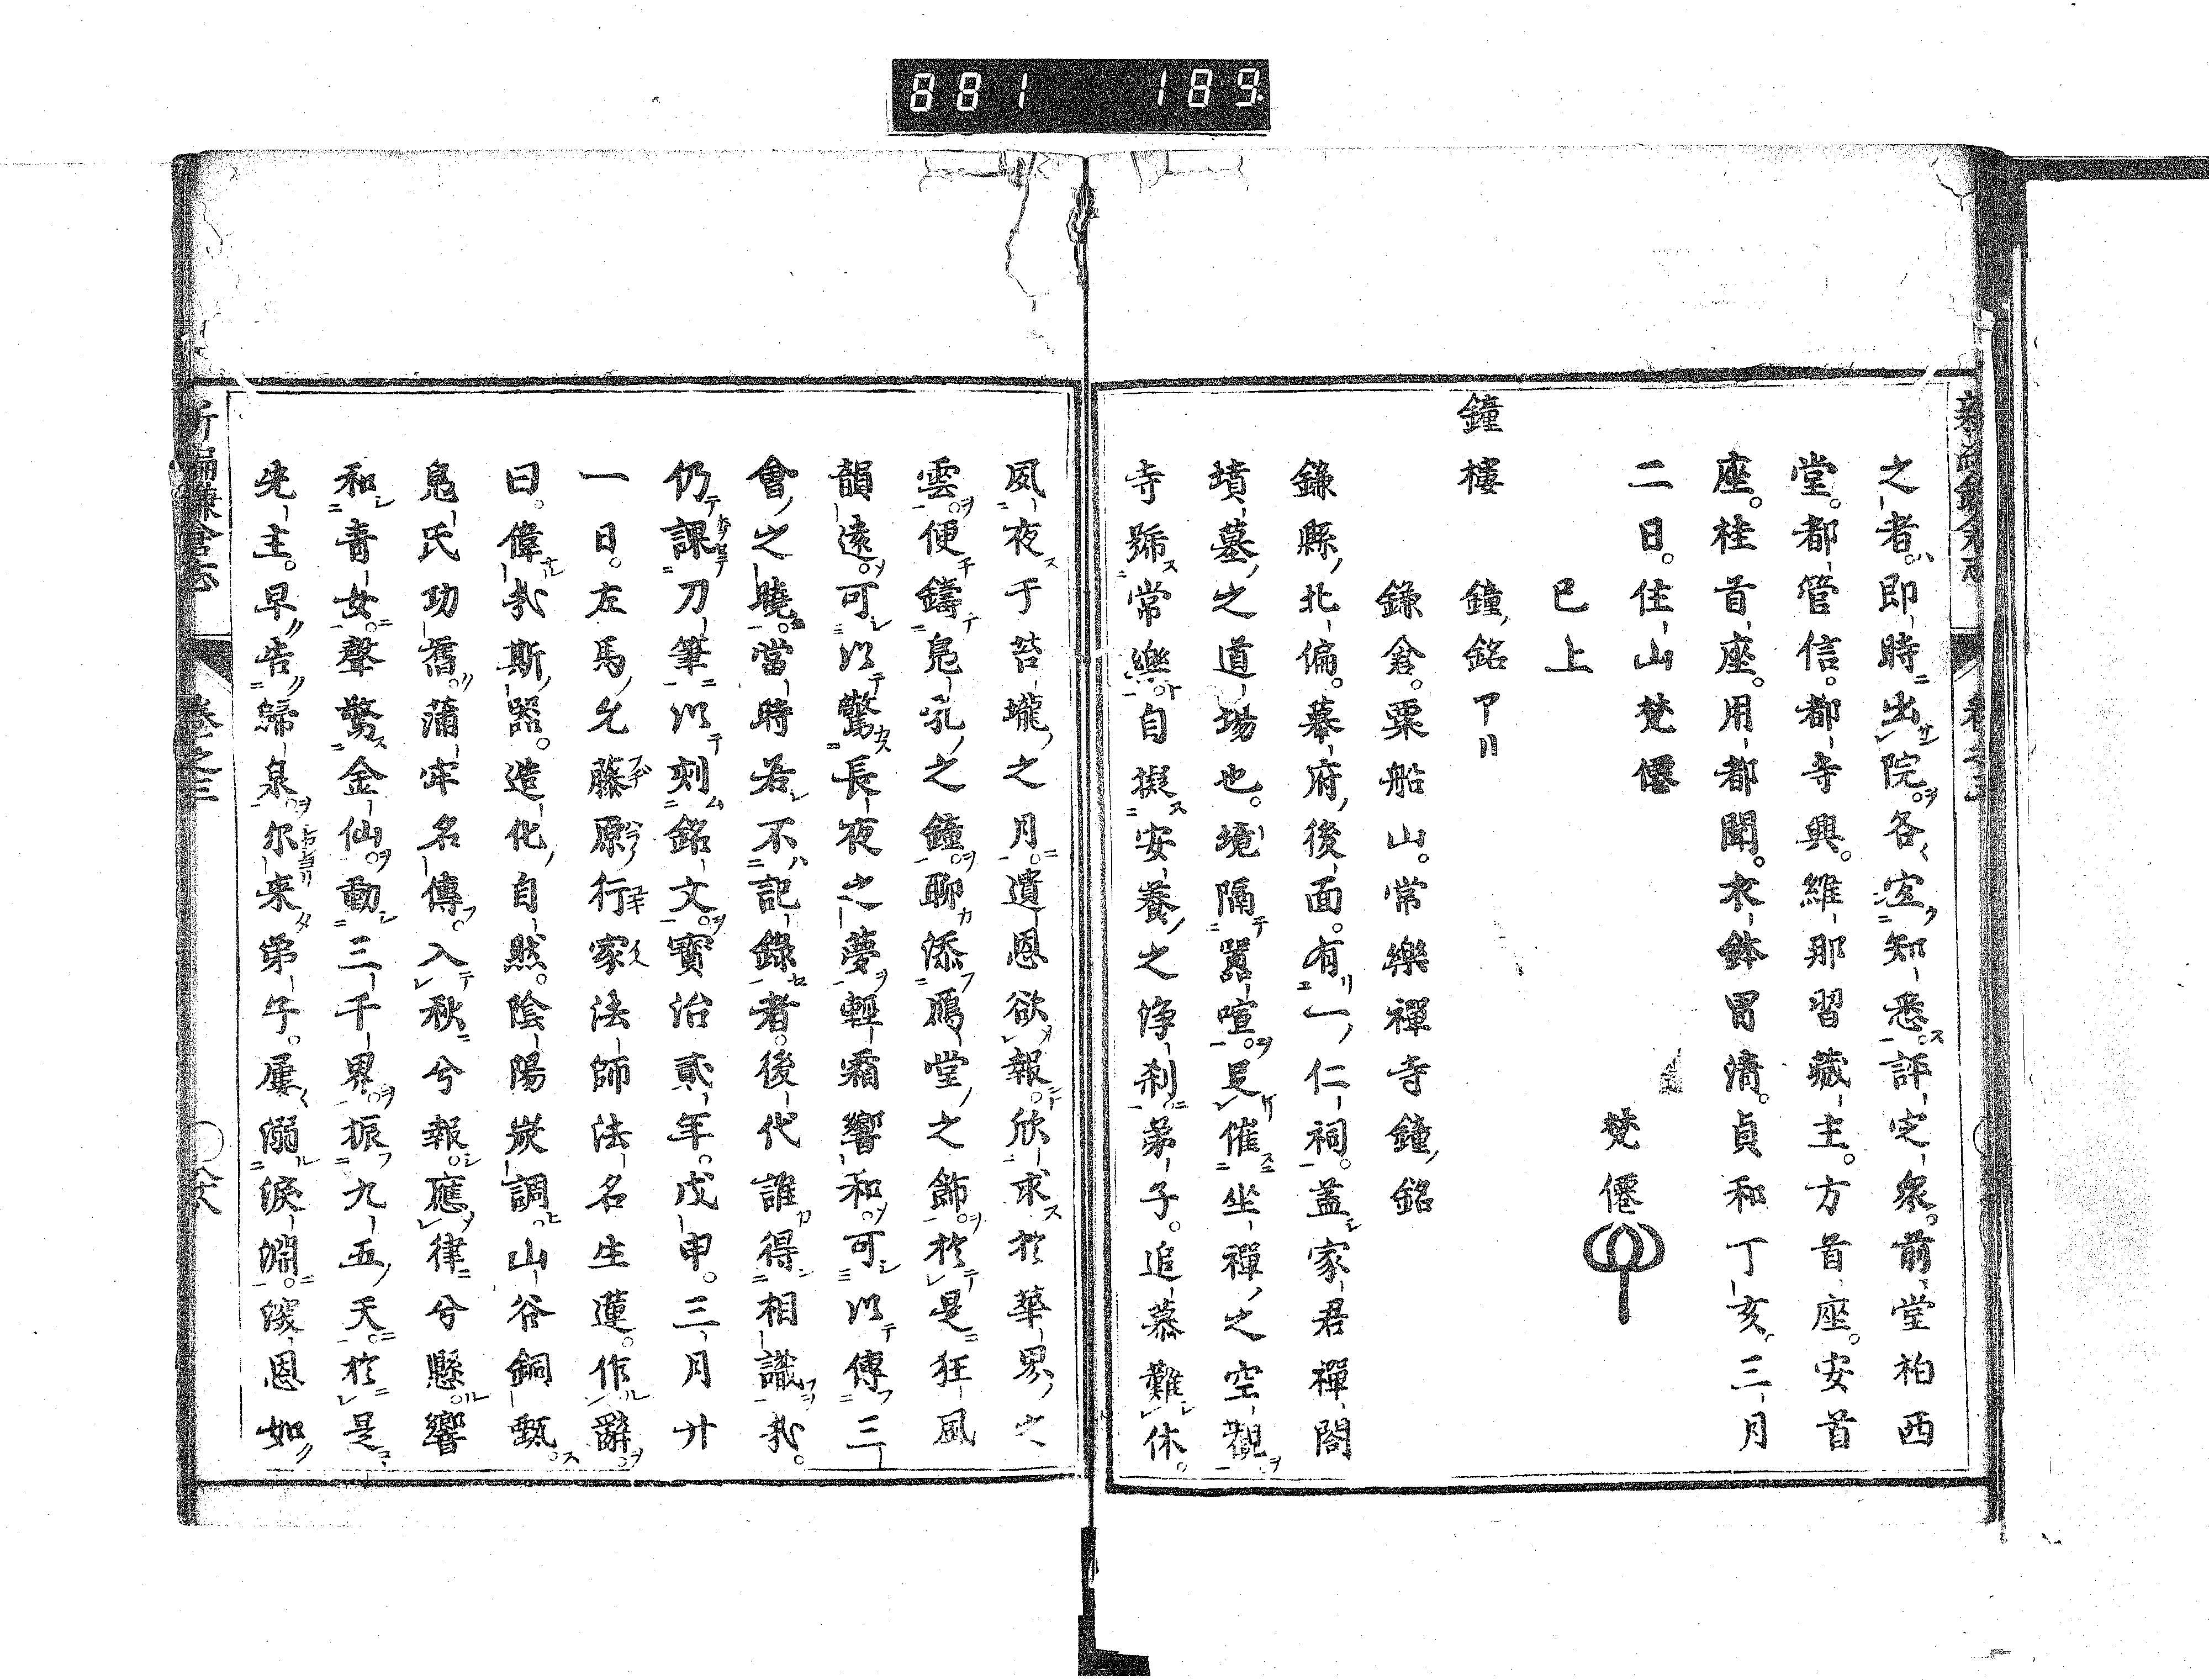 881 189
之者。即時出院。各宜知悉。評定衆。前堂柏西
堂。都管信。都寺興。維那習藏主。方首座。安首
座。桂首座。用都聞。衣鉢胃清。貞和丁亥。三月
二日。住山梵僊
梵僊
已上
鐘樓 鐘銘アリ
鎌倉。粟船山。常樂禪寺鐘銘
鎌縣北偏。幕府後面。有一仁祠。蓋家君禪閤
墳墓之道場也。境隔囂喧。足催坐禪之空觀
寺號常樂。自擬安養之淨刹。弟子。追慕難休。
夙夜于苔壠之月。遺恩欲報。欣求於華界之
雲。便鑄鳧乳之鐘。聊添鴈堂之飾。於是狂風
韻遠。可以驚長夜之夢。輕霜響和。可以傳三
會之曉。當時若不記錄者。後代誰得相識哉。
仍課刀筆以刻銘文。寶治貳年。戊申。三月廾
一日。左馬允藤原行家法師法名生蓮。作辭
曰。偉哉斯器。造化自然。陰陽炭調。山谷銅甄。
鳧氏功舊。蒲牢名傳。入秋兮報。應律兮懸。響
和青女。聲驚金仙。動三千界。振九五天。於是
先主。早告歸泉。尓来弟子。屢溺淚淵。深恩如
新編鎌倉志 卷之三 八六